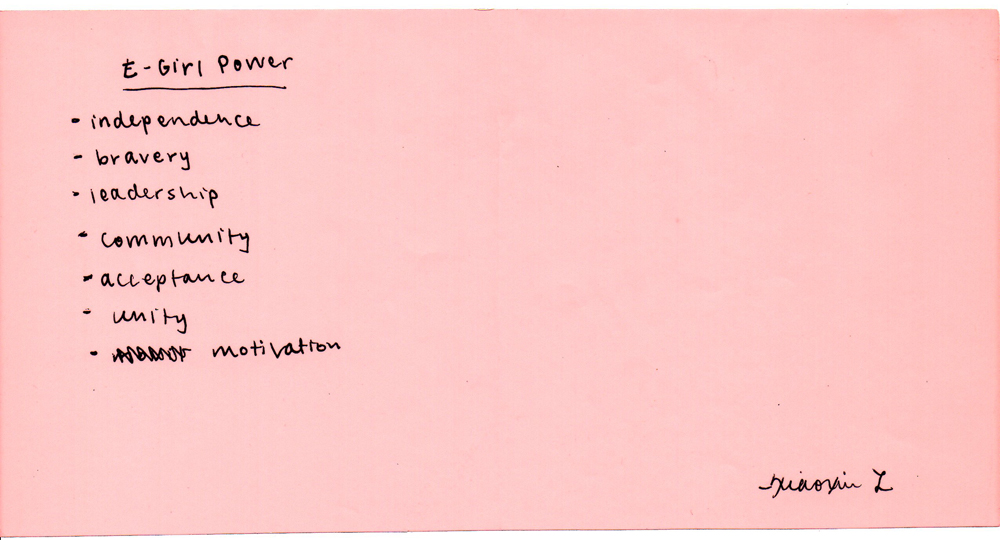 E-Girl Power
- independence
- bravery
- leadership
- community
- acceptance
- unity
- motivation
Xiaoxin L